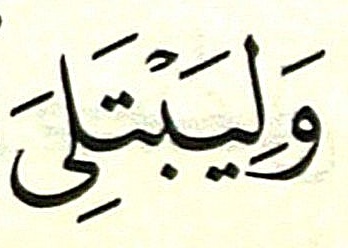 وَلِيَبْتَلِىَ